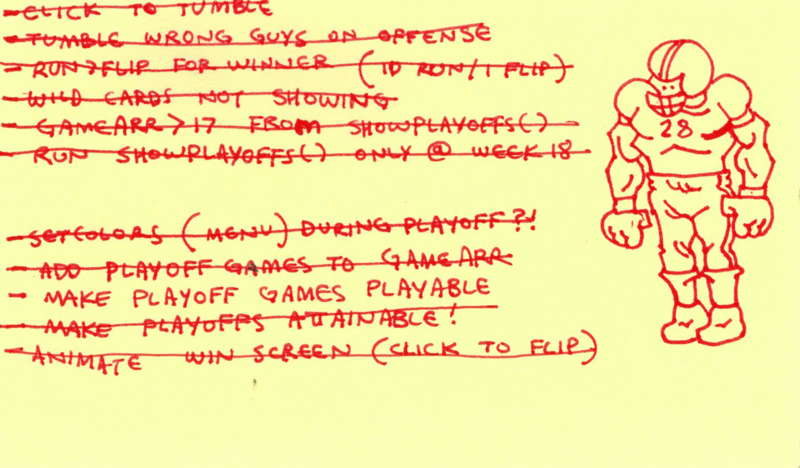 - CLICK TO TUMBLE
- TUMBLE WRONG GUYS ON OFFENSE
- RUN>FLIP FOR WINNER (10 RUN/1 FLIP)
- WILD CARDS NOT SHOWING
- GAMEARR > 17 FROM SHOWPLAYOFFS()
- RUN SHOWPLAYOFFS() ONLY @ WEEK 18
28
- SETCOLORS (MENU) DURING PLAYOFF?!
- ADD PLAYOFF GAMES TO GAMEARR
- MAKE PLAYOFF GAMES PLAYABLE
- MAKE PLAYOFFS ATTAINABLE!
- ANIMATE WIN SCREEN (CLICK TO FLIP)